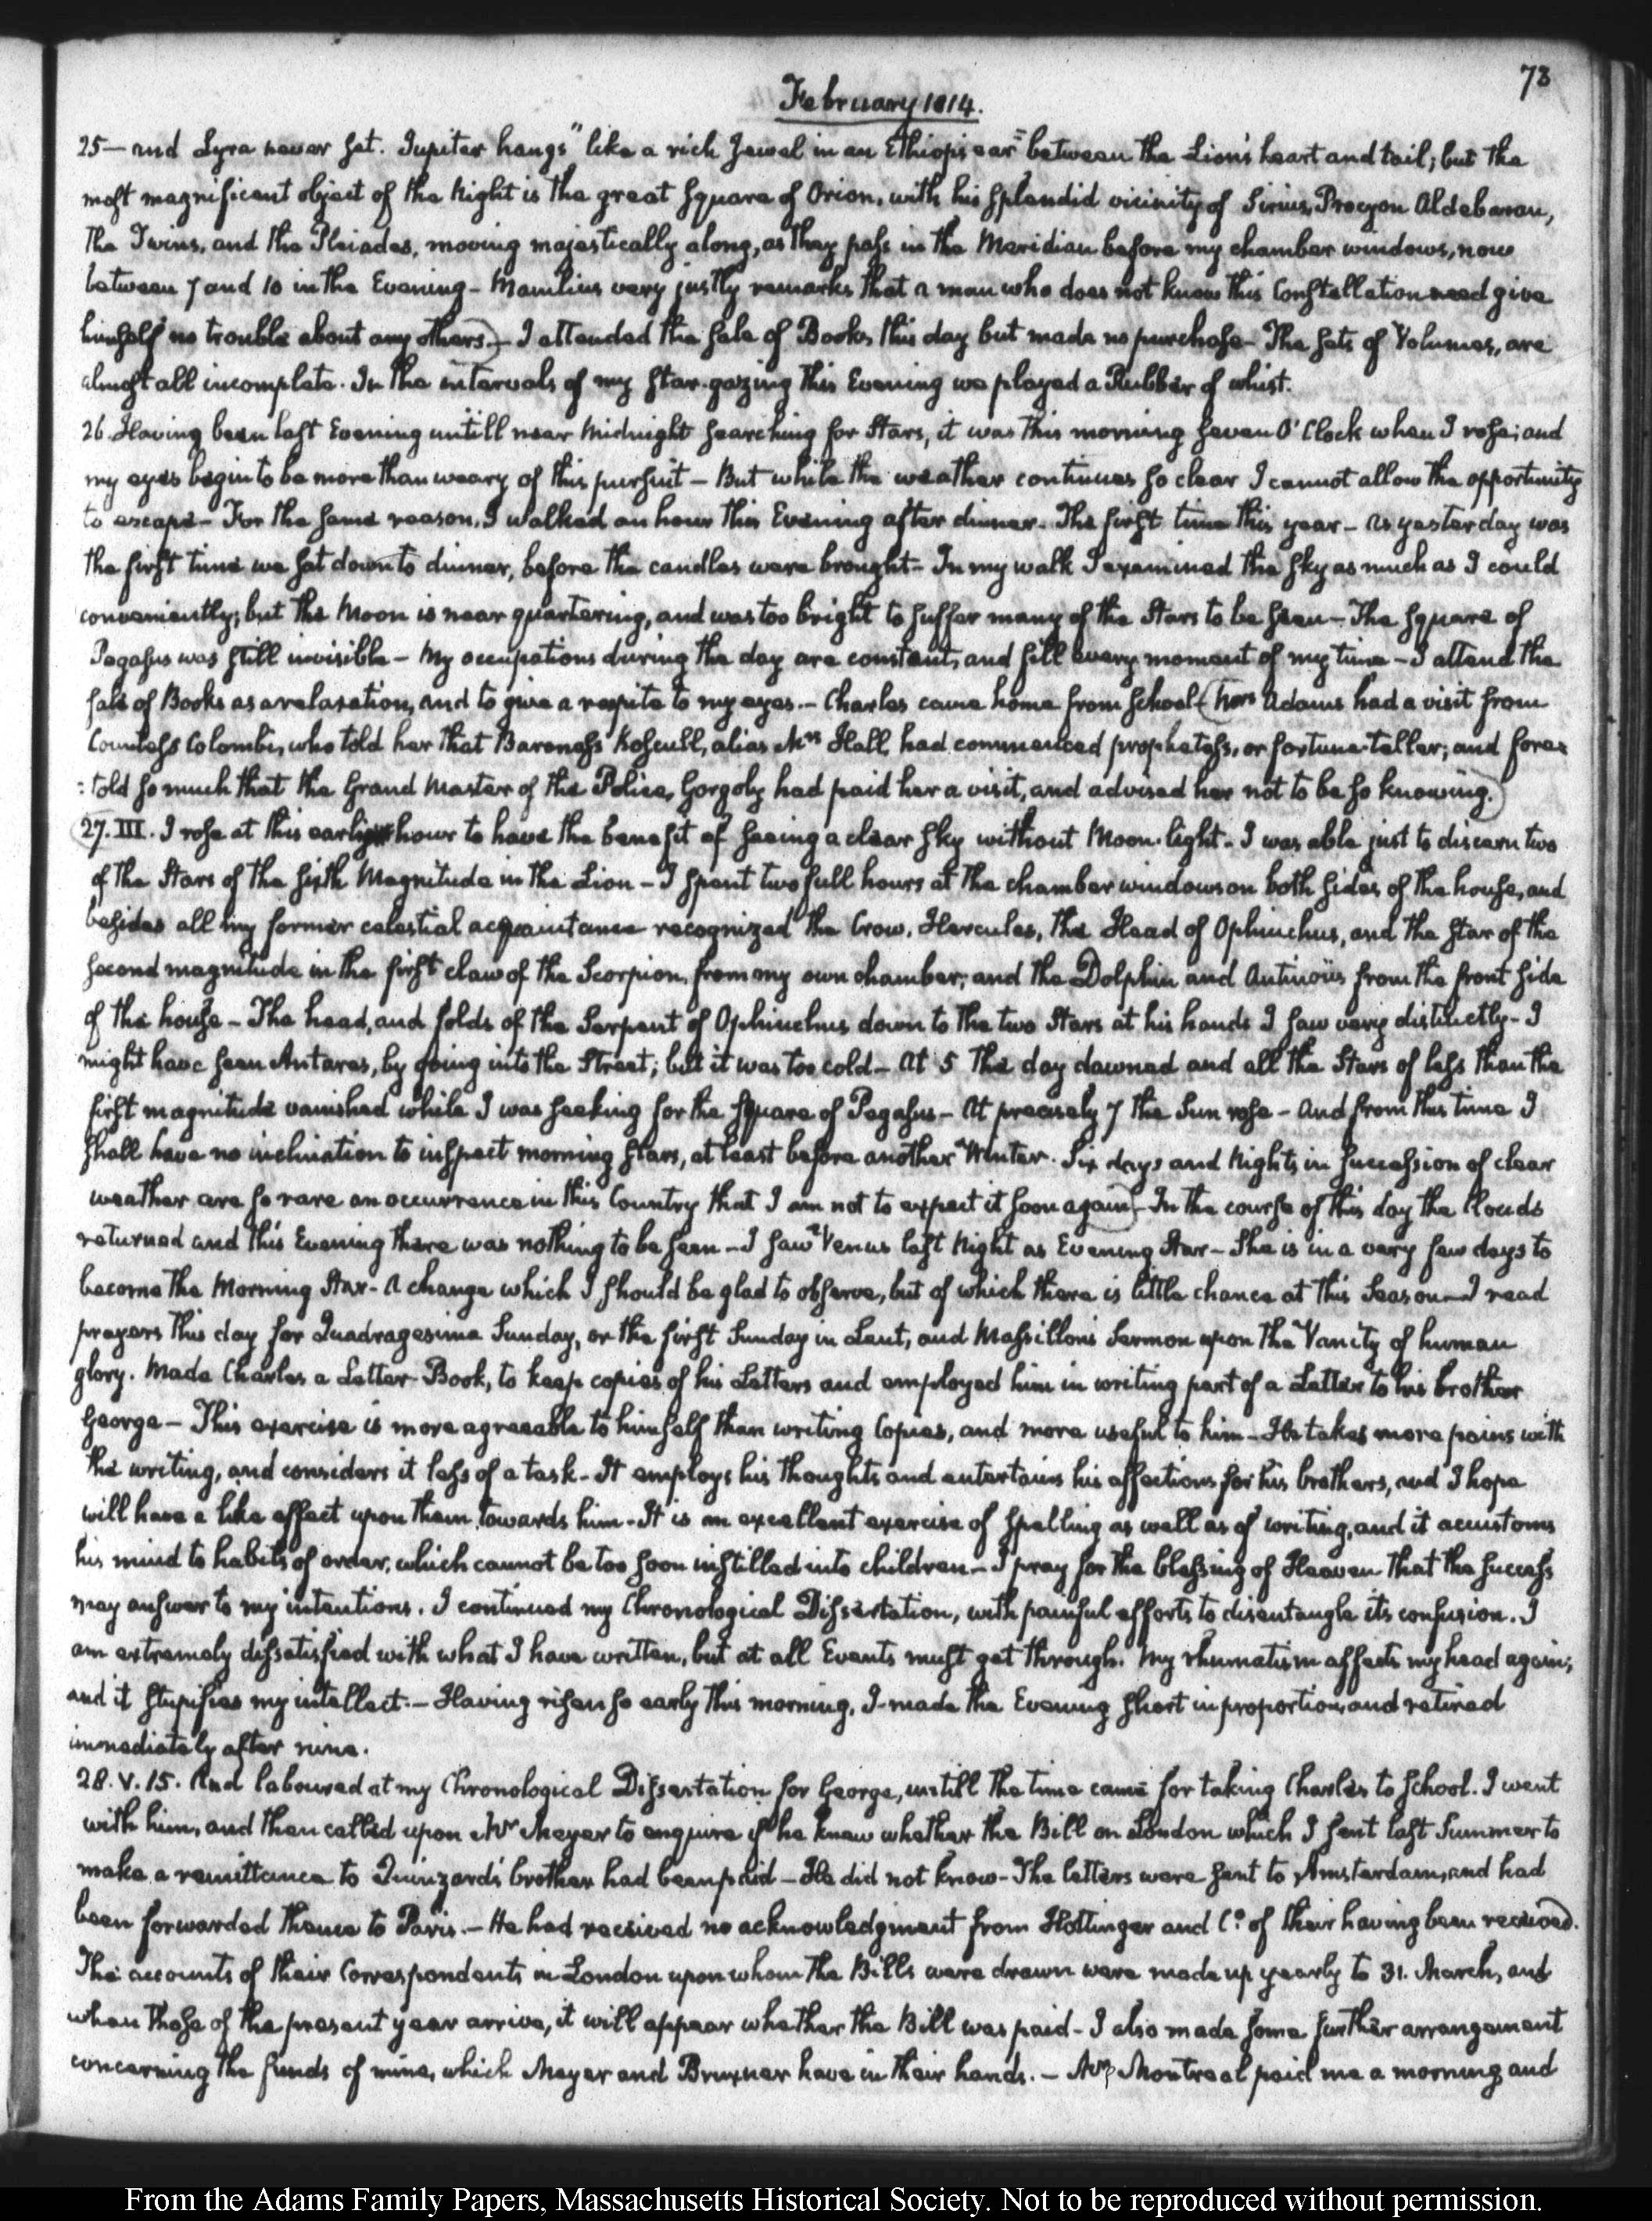 78
February 1814.
25 — and Lyra never set. Jupiter hangs "like a rich Jewel in an Ethiop's ear" between the Lion's heart and tail; but the
most magnificent object of the Night is the great Square of Orion, with his splendid vicinity of Sirius, Procyon Aldebaran,
The Twins, and the Pleiades, moving majestically along, as they pass in the Meridian before my chamber windows, now
between 7 and 10 in the Evening - Manilius very justly remarks that a man who does not know this Constellation need give
himself no trouble about any others.) - I attended the sale of Books this day but made no purchase - The sets of Volumes, are
almost all incomplete. In the intervals of my star-gazing this Evening we played a Rubber of whist.
26. Having been last Evening untill near Midnight searching for Stars, it was this morning seven O'Clock when I rose; and
my eyes begin to be more than weary of this pursuit - But while the weather continues so clear I cannot allow the opportunity
to escape - For the same reason, I walked an hour this Evening after dinner. The first time this year - As yesterday was
the first time we sat down to dinner, before the candles were brought - In my walk I examined the sky as much as I could
conveniently; but the Moon is near quartering, and was too bright to suffer many of the Stars to be seen - The square of
Pegasus was still invisible - My occupations during the day are constant, and fill every moment of my time - I attend the
sale of Books as a relaxation, and to give a respite to my eyes. - Charles came home from School (Mrs Adams had a visit from
Countess Colombi, who told her that Baroness Koscull, alias Mrs Hall, had commenced prophetess, or fortune-teller; and fore-
:told so much that the Grand Master of the Police, Gorgoly had paid her a visit, and advised her not to be so knowing.)
(27. III. I rose at this early hour to have the benefit of seeing a clear sky without Moon-light - I was able just to discern two
of the Stars of the sixth Magnitude in the Lion - I spent two full hours at the chamber windows on both sides of the house, and
besides all my former celestial acquaintance recognized the Crow, Hercules, the Head of Ophiuchus, and the star of the
second magnitude in the first claw of the Scorpion, from my own chamber; and the Dolphin and Antinoüs from the front side
of the house - The head, and folds of the Serpent of Ophiuchus down to the two Stars at his hands I saw very distinctly - I
might have seen Antares, by going into the Street; but it was too cold - At 5 The day dawned and all the Stars of less than the
first magnitude vanished while I was seeking for the square of Pegasus - At precisely 7 the Sun rose - And from this time I
shall have no inclination to inspect morning stars, at least before another Winter. Six days and Nights in succession of clear
weather are so rare an occurrence in this Country that I am not to expect it soon again) - In the course of this day the Clouds
returned and this Evening there was nothing to be seen - I saw Venus last Night as Evening Star - She is in a very few days to
become the Morning Star - A change which I should be glad to observe, but of which there is little chance at this Season - I read
prayers this day for Quadragesima Sunday, or the first Sunday in Lent, and Massillon's Sermon upon the Vanity of human
glory. Made Charles a Letter-Book, to keep copies of his Letters and employed him in writing part of a Letter to his brother
George - This exercise is more agreeable to himself than writing Copies, and more useful to him - He takes more pains with
the writing, and considers it less of a task - It employs his thoughts and entertains his affections for his brothers, and I hope
will have a like effect upon them towards him - It is an excellent exercise of spelling as well as of writing, and it accustoms
his mind to habits of order, which cannot be too soon instilled into children - I pray for the blessing of Heaven that the success
may answer to my intentions. I continued my Chronological Dissertation, with painful efforts to disentangle its confusion. I
am extremely dissatisfied with what I have written, but at all Events must get through. My rheumatism affects my head again;
and it stupifies my intellect. - Having risen so early this morning, I made the Evening short in proportion, and retired
immediately after nine.
28. V. 15. And laboured at my Chronological Dissertation for George, untill the time came for taking Charles to School. I went
with him, and then called upon Mr Meyer to enquire if he knew whether the Bill on London which I sent last Summer to
make a remittance to Quinzard's brother had been paid - He did not know - The letters were sent to Amsterdam, and had
been forwarded thence to Paris. - He had received no acknowledgment from Hottinger and Co. of their having been received.
The accounts of their Correspondents in London upon whom the Bills were drawn were made up yearly to 31. March, and
when those of the present year arrive, it will appear whether the Bill was paid - I also made some further arrangement
concerning the funds of mine, which Meyer and Bruxner have in their hands. - Mr Montreal paid me a morning and
From the Adams Family Papers, Massachusetts Historical Society. Not to be reproduced without permission.